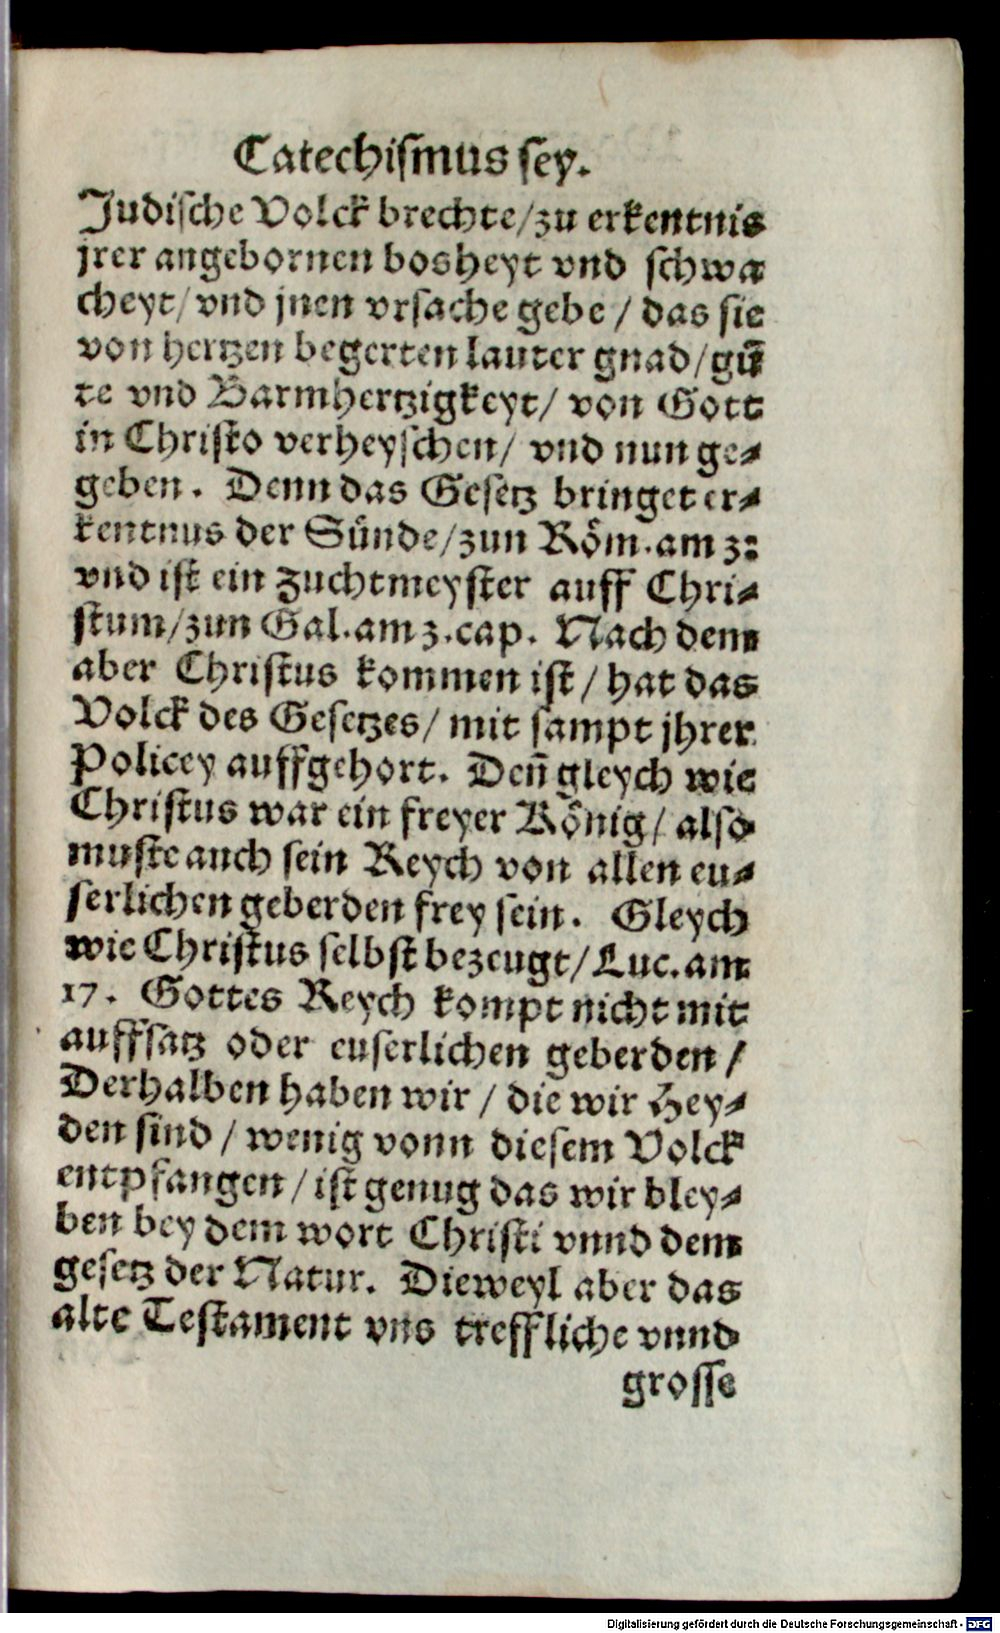 Catechiſmus ſey.
Judiſche Volck brechte/zu erkentnis
jrer angebornen bosheyt vnd ſchwa
cheyt/vnd jnen vrſache gebe / das ſie
von hertzen begerten lauter gnad/guͤ
te vnd Barmhertzigkeyt/ von Gott
in Chriſto verheyſchen/ vnd nun ge⸗
geben. Denn das Geſetz bringet er⸗
kentnus der Suͤnde/zun Roͤm.am 3:
vnd iſt ein Zuchtmeyſter auff Chri⸗
ſtum/zun Gal.am 3.cap. Nach dem
aber Chriſtus kommen iſt / hat das
Volck des Geſetzes/ mit ſampt jhrer
Policey auffgehort. Deñ gleych wie
Chriſtus war ein freyer Koͤnig/ alſo
muſte auch ſein Reych von allen eu⸗
ſerlichen geberden frey ſein. Gleych
wie Chriſtus ſelbſt bezeugt/Luc.am
17. Gottes Reych kompt nicht mit
auffſatz oder euſerlichen geberden /
Derhalben haben wir / die wir Hey⸗
den ſind / wenig vonn dieſem Volck
entpfangen / iſt genug das wir bley⸗
ben bey dem wort Chriſti vnnd dem
geſetz der Natur. Dieweyl aber das
alte Teſtament vns treffliche vnnd
groſſe
Digitalisierung gefördert durch die Deutsche Forschungsgemeinschaft - DFG